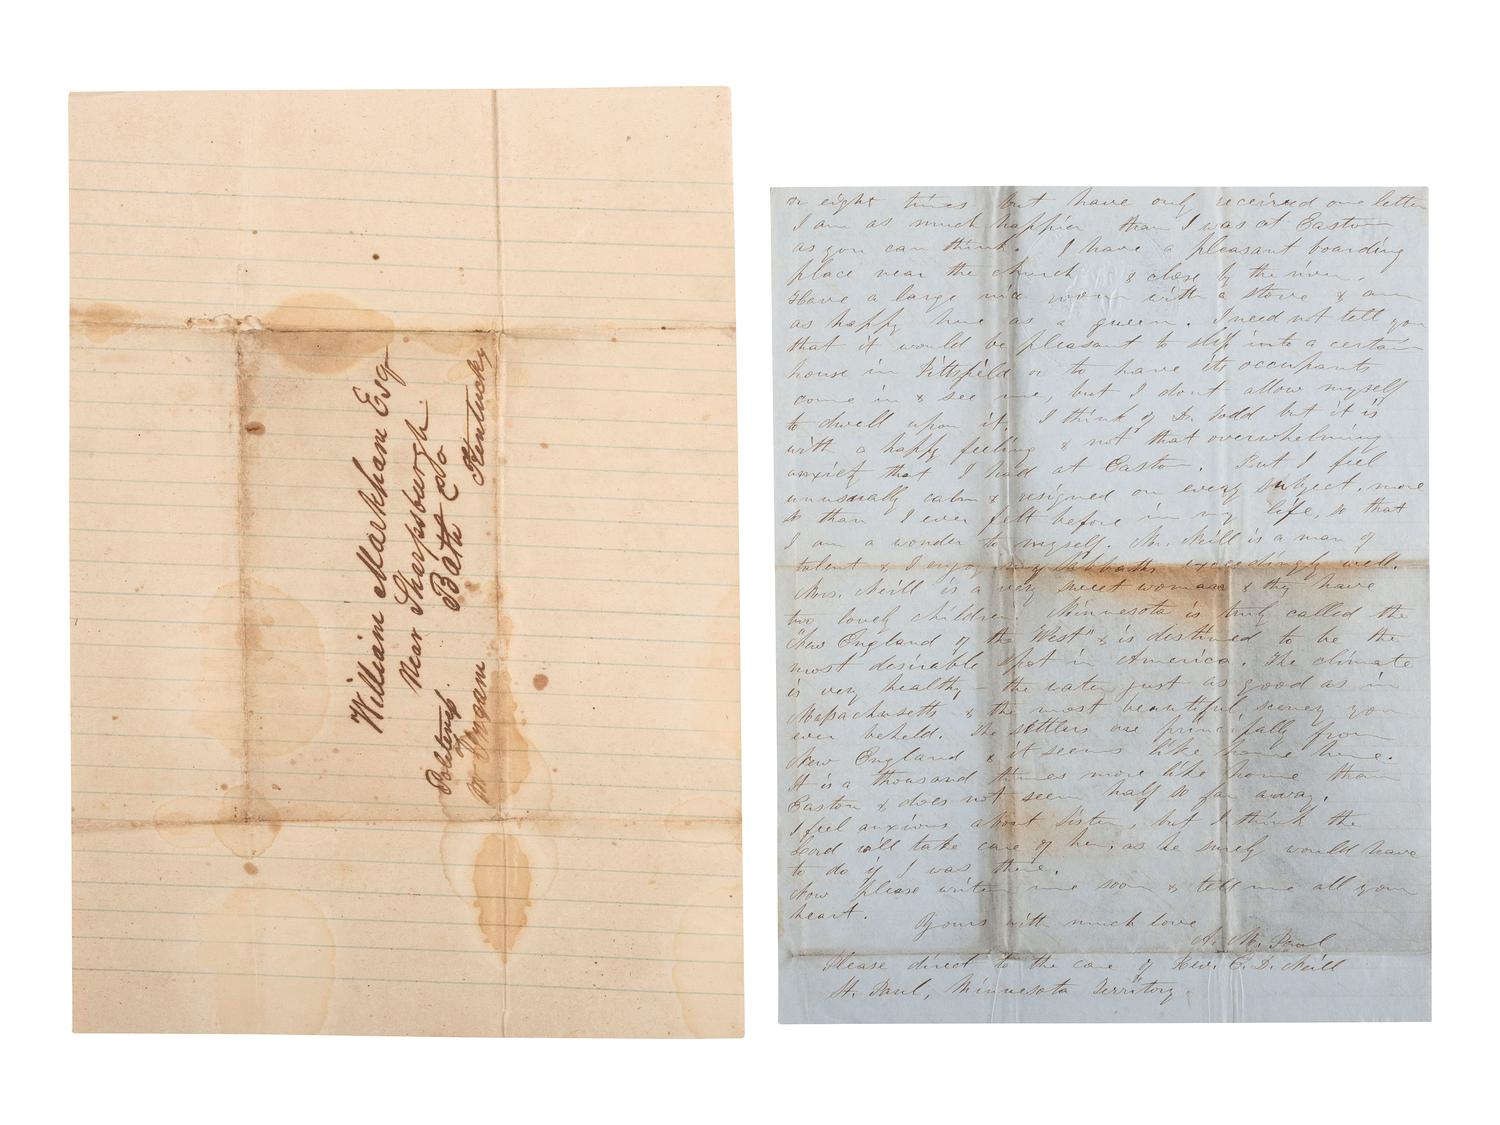 William Markham Esq
Near Sharpsburgh
Bath Co
Kentucky
Politeness
Mr Ingram
or eight times but have only received one letter
I am as much happier than I was at Easton
as you can think. I have a pleasant boarding
place near the church & close by the river.
Have a large nice room with a stove & am
as happy here as a queen. I need not tell you
that it would be pleasant to slip into a certain
house in Pittsfield or to have its occupants
come in & see me, but I dont allow myself
to dwell upon it. I think of Dr. Todd but it is
with a happy feeling & not that overwhelming
anxiety that I had at Easton. But I feel
unusually calm & resigned on every subject, more
so than I ever felt before in my life, so that
I am a wonder to myself. Mr. Neill is a man of
talent & I enjoy my Sabbaths exceedingly well.
Mrs. Neill is a very sweet woman & they have
two lovely children. Minnesota is truly called the
"New England of the West" & is destined to be the
most desirable spot in America. The climate
is very healthy – the water just as good as in
Massachusetts & the most beautiful scenery you
ever beheld. The settlers are principally from
New England & it seems like home here.
It is a thousand times more like home than
Easton & does not seem half so far away.
I feel anxious about Sister, but I think the
Lord will take care of her, as he surely would have
to do if I was there.
Now please write me soon & tell me all your
heart.
Yours with much love
A. M. Paul
Please direct to the care of Rev. E. D. Neill
St. Paul, Minnesota Territory.